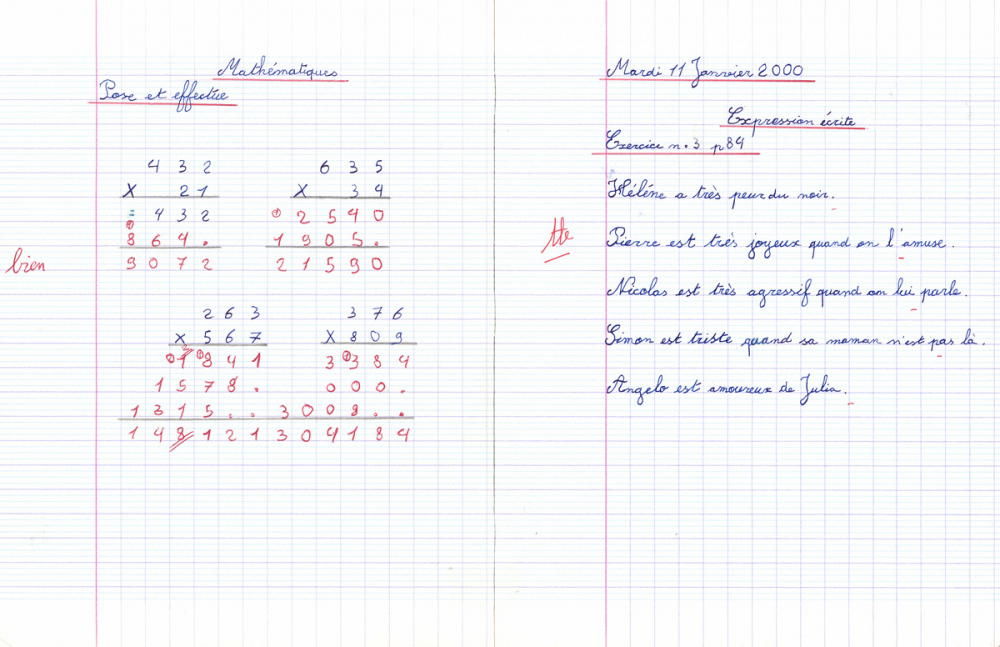 Mathématiques
Pose et effectue
4 3 2
X 2 1
= 4 3 2
8 6 4 .
9 0 7 2
bien
6 3 5
X 3 4
2 5 4 0
1 9 0 5 .
2 1 5 9 0
2 6 3
X 5 6 7
1 8 4 1
1 5 7 8 .
1 3 1 5 . .
1 4 8 1 2 1
3 7 6
X 8 0 9
3 3 8 4
0 0 0 .
3 0 0 8 . .
3 0 4 1 8 4
Mardi 11 Janvier 2000
Expression écrite
Exercice n. 3 p 84
Hélène a très peur du noir.
Pierre est très joyeux quand on l'amuse.
Nicolas est très agressif quand on lui parle.
Simon est triste quand sa maman n'est pas là.
Angelo est amoureux de Julia.